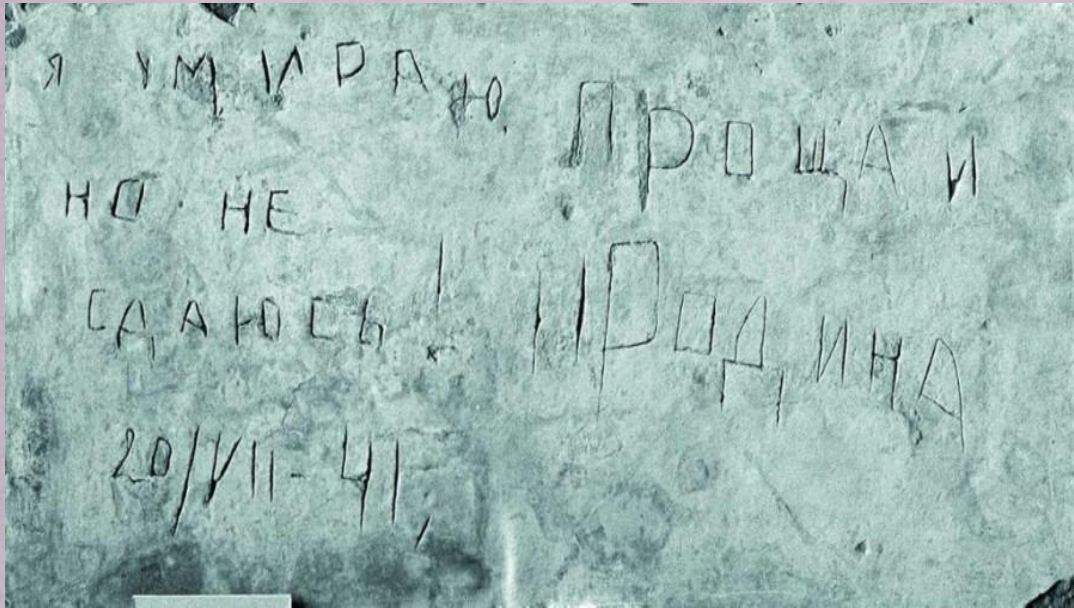 я УМИРАЮ,
НО НЕ
СДАЮСЬ!
20/VII-41,
ПРОЩАИ
РОДИНА